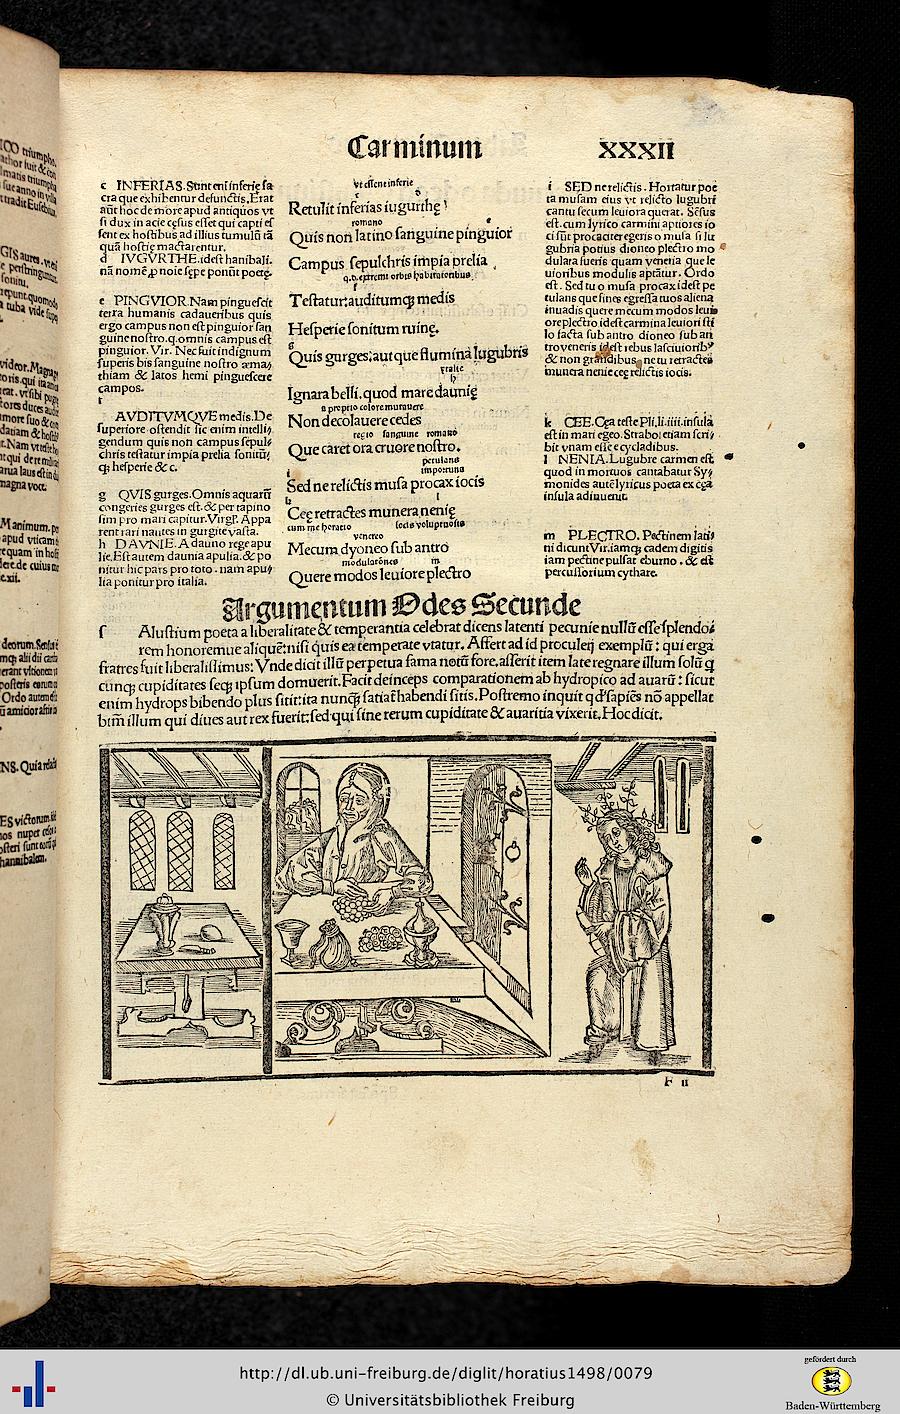 Carminum XXXII
c INFERIAS. Sunt eni inferie sa
cra que exhibentur defunctis. Erat
aūt hoc de more apud antiquos vt
si dux in acie cęsus esset qui capti es
sent ex hostibus ad illius tumulū tā
quā hostię mactarentur.
d IVGVRTHE. idest hanibali.
nā nomē ꝓ noie sępe ponūt poetę.
e PINGVIOR. Nam pinguescit
terra humanis cadaueribus quis
ergo campus non est pinguior san
guine nostro. q. omnis campus est
pinguior. Vir. Nec fuit indignum
superis bis sanguine nostro æma/
thiam & latos hemi pinguescere
campos.
f
AVDITVMQVE medis. De
superiore ostendit sic enim intelli/
gendum quis non campus sepul/
chris testatur impia prelia sonitū/
q; hesperie &c.
g QVIS gurges. Omnis aquarū
congeries gurges est. & per tapino
sim pro mari capitur. Virgl'. Appa
rent rari nantes in gurgite vasta.
h DAVNIE. A dauno rege apu
lie. Est autem daunia apulia. & po
nitur hic pars pro toto. nam apu/
lia ponitur pro italia.
vt essent inferie
c d
Retulit inferias iugurthę
romano e
Quis non latino sanguine pinguior
Campus sepulchris impia prelia
q.d. extremi orbis habitatoribus
f
Testatur: auditumq; medis
Hesperie sonitum ruinę.
g
Quis gurges: aut que flumina lugubris
ytalie
h
Ignara belli. quod mare daunię
a proprio colore mutauere
Non decolauere cedes
regio sanguine romano
Que caret ora cruore nostro.
petulans
i importuna
Sed ne relictis musa procax iocis
k l
Ceę retractes munera nenię
cum me horatio locis voluptuosis
venereo
Mecum dyoneo sub antro
modulatōnes m
Quere modos leuiore plectro
i SED ne relictis. Hortatur poe
ta musam eius vt relicto lugubri
cantu secum leuiora querat. Sēsus
est. cum lyrico carmini aptiores io
ci sūt procaciter egeris o musa si lu
gubria potius dioneo plectro mo
dulara fueris quam veneria que le
uioribus modulis aptātur. Ordo
est. Sed tu o musa procax idest pe
tulans que fines egressa tuos aliena
inuadis quere mecum modos leui
ore plectro idest carmina leuiori sti
lo facta sub antro dioneo sub an
tro veneris idest rebus lasciuioribꝰ
& non grandibus. ne tu retractes
munera nenie ceę relictis iocis.
k CEE. Cęa teste Pli. li. iiii. insula
est in mari egeo. Strabo etiam scri/
bit vnam esse e cycladibus.
l NENIA. Lugubre carmen est
quod in mortuos cantabatur Sy/
monides autē lyricus poeta ex cęa
insula adiuuenit.
m PLECTRO. Pectinem lati/
ni dicunt Vir. iamq; eadem digitis
iam pectine pulsat eburno. & est
percussorium cythare.
Argumentum Odes Secunde
s Alustium poeta a liberalitate & temperantia celebrat dicens latenti pecunie nullū esse splendo/
rem honoremue aliquē: nisi quis ea temperate vtatur. Affert ad id proculeij exemplū: qui erga
fratres fuit liberalissimus: Vnde dicit illū perpetua fama notū fore. asserit item late regnare illum solū q
cunq; cupiditates seq; ipsum domuerit. Facit deinceps comparationem ab hydropico ad auarū: sicut
enim hydrops bibendo plus sitit: ita nunq̄ satiat habendi sitis. Postremo inquit qd' sapiēs nō appellat
btm illum qui diues aut rex fuerit: sed qui sine rerum cupiditate & auaritia vixerit. Hoc dicit.
F ii
http://dl.ub.uni-freiburg.de/diglit/horatius1498/0079
© Universitätsbibliothek Freiburg
gefördert durch
Baden-Württemberg